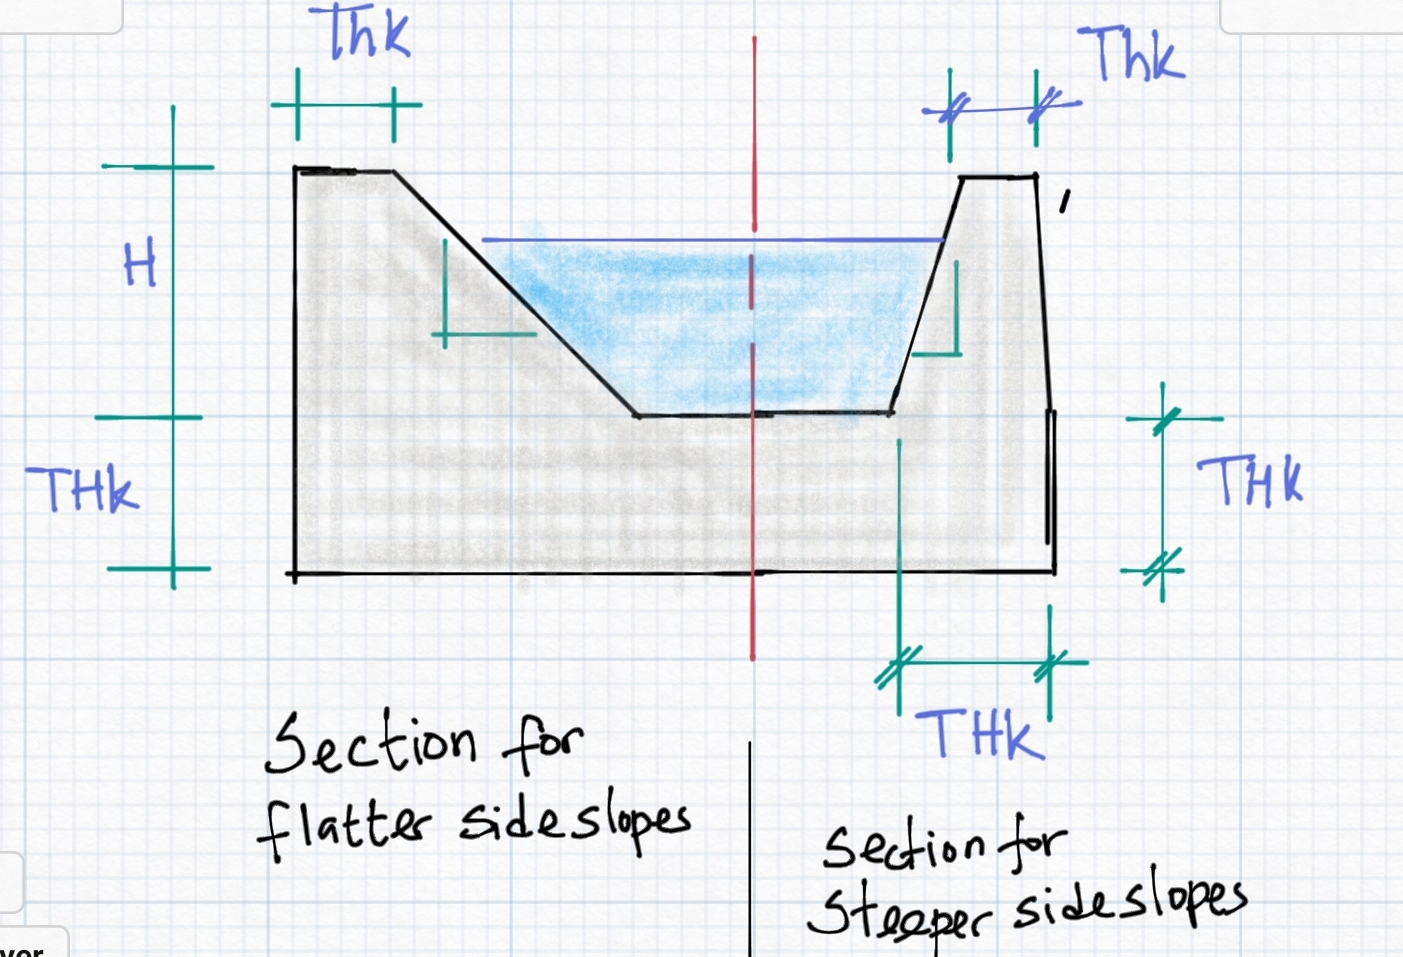 Thk
Thk
H
THk
THk
THk
Section for
flatter sideslopes
Section for
Steeper sideslopes